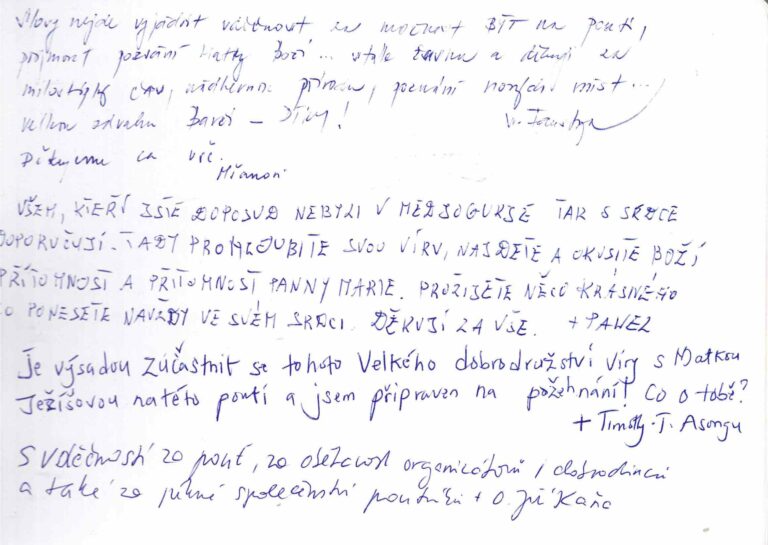 Slovy nejde vyjádřit vděčnost za možnost BÝT na pouti,
přijmout pozvání Matky Boží ... stále žasnu a děkuji za
milostiplný čas, nádhernou přírodu, poznání nových míst ...,
velkou odvahu Bavos – Díky!
Děkujeme za vše.
VŠEM, KTEŘÍ JŠTĚ DOPOSUD NEBYLI V MEDJOGURJE TAK S SRDCE
DOPORUČUJI. TADY PROHLOUBÍTE SVOU VÍRU, NAJDETE A OKUSÍTE BOŽÍ
PŘÍTOMNOST A PŘÍTOMNOST PANNY MARIE. PROŽIJETE NĚCO KRÁSNÉHO
CO PONESETE NAVŽDY VE SVÉM SRDCI. DĚKUJI ZA VŠE. + PAWEL
Je výsadou zúčastnit se tohoto Velkého dobrodružství víry s Matkou
Ježíšovou na této pouti a jsem připraven na požehnání! Co o tobě?
+ Timothy. T. Asongu
S vděčností za pouť, za obětavost organizátorů i dobrodinců
a také za pěkné společenství poutníků + O. Jiří Kaňa